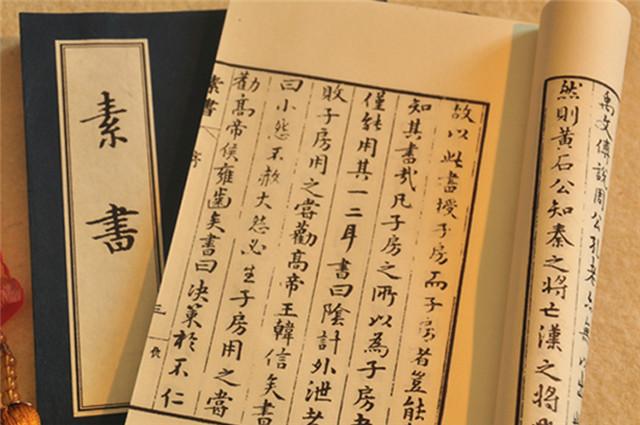 素書
禹文傅說周公孔老
然則黃石公知秦之將亡漢之將
故以此書授子房而子房者豈能
知其書哉凡子房之所以為子房者
僅能用其一二耳書曰陰計外泄者
敗子房用之嘗勸高帝王韓信矣書
曰小怨不赦大怨必生子房用之嘗
勸高帝侯雍齒矣書曰決策於不仁
素書 序 三